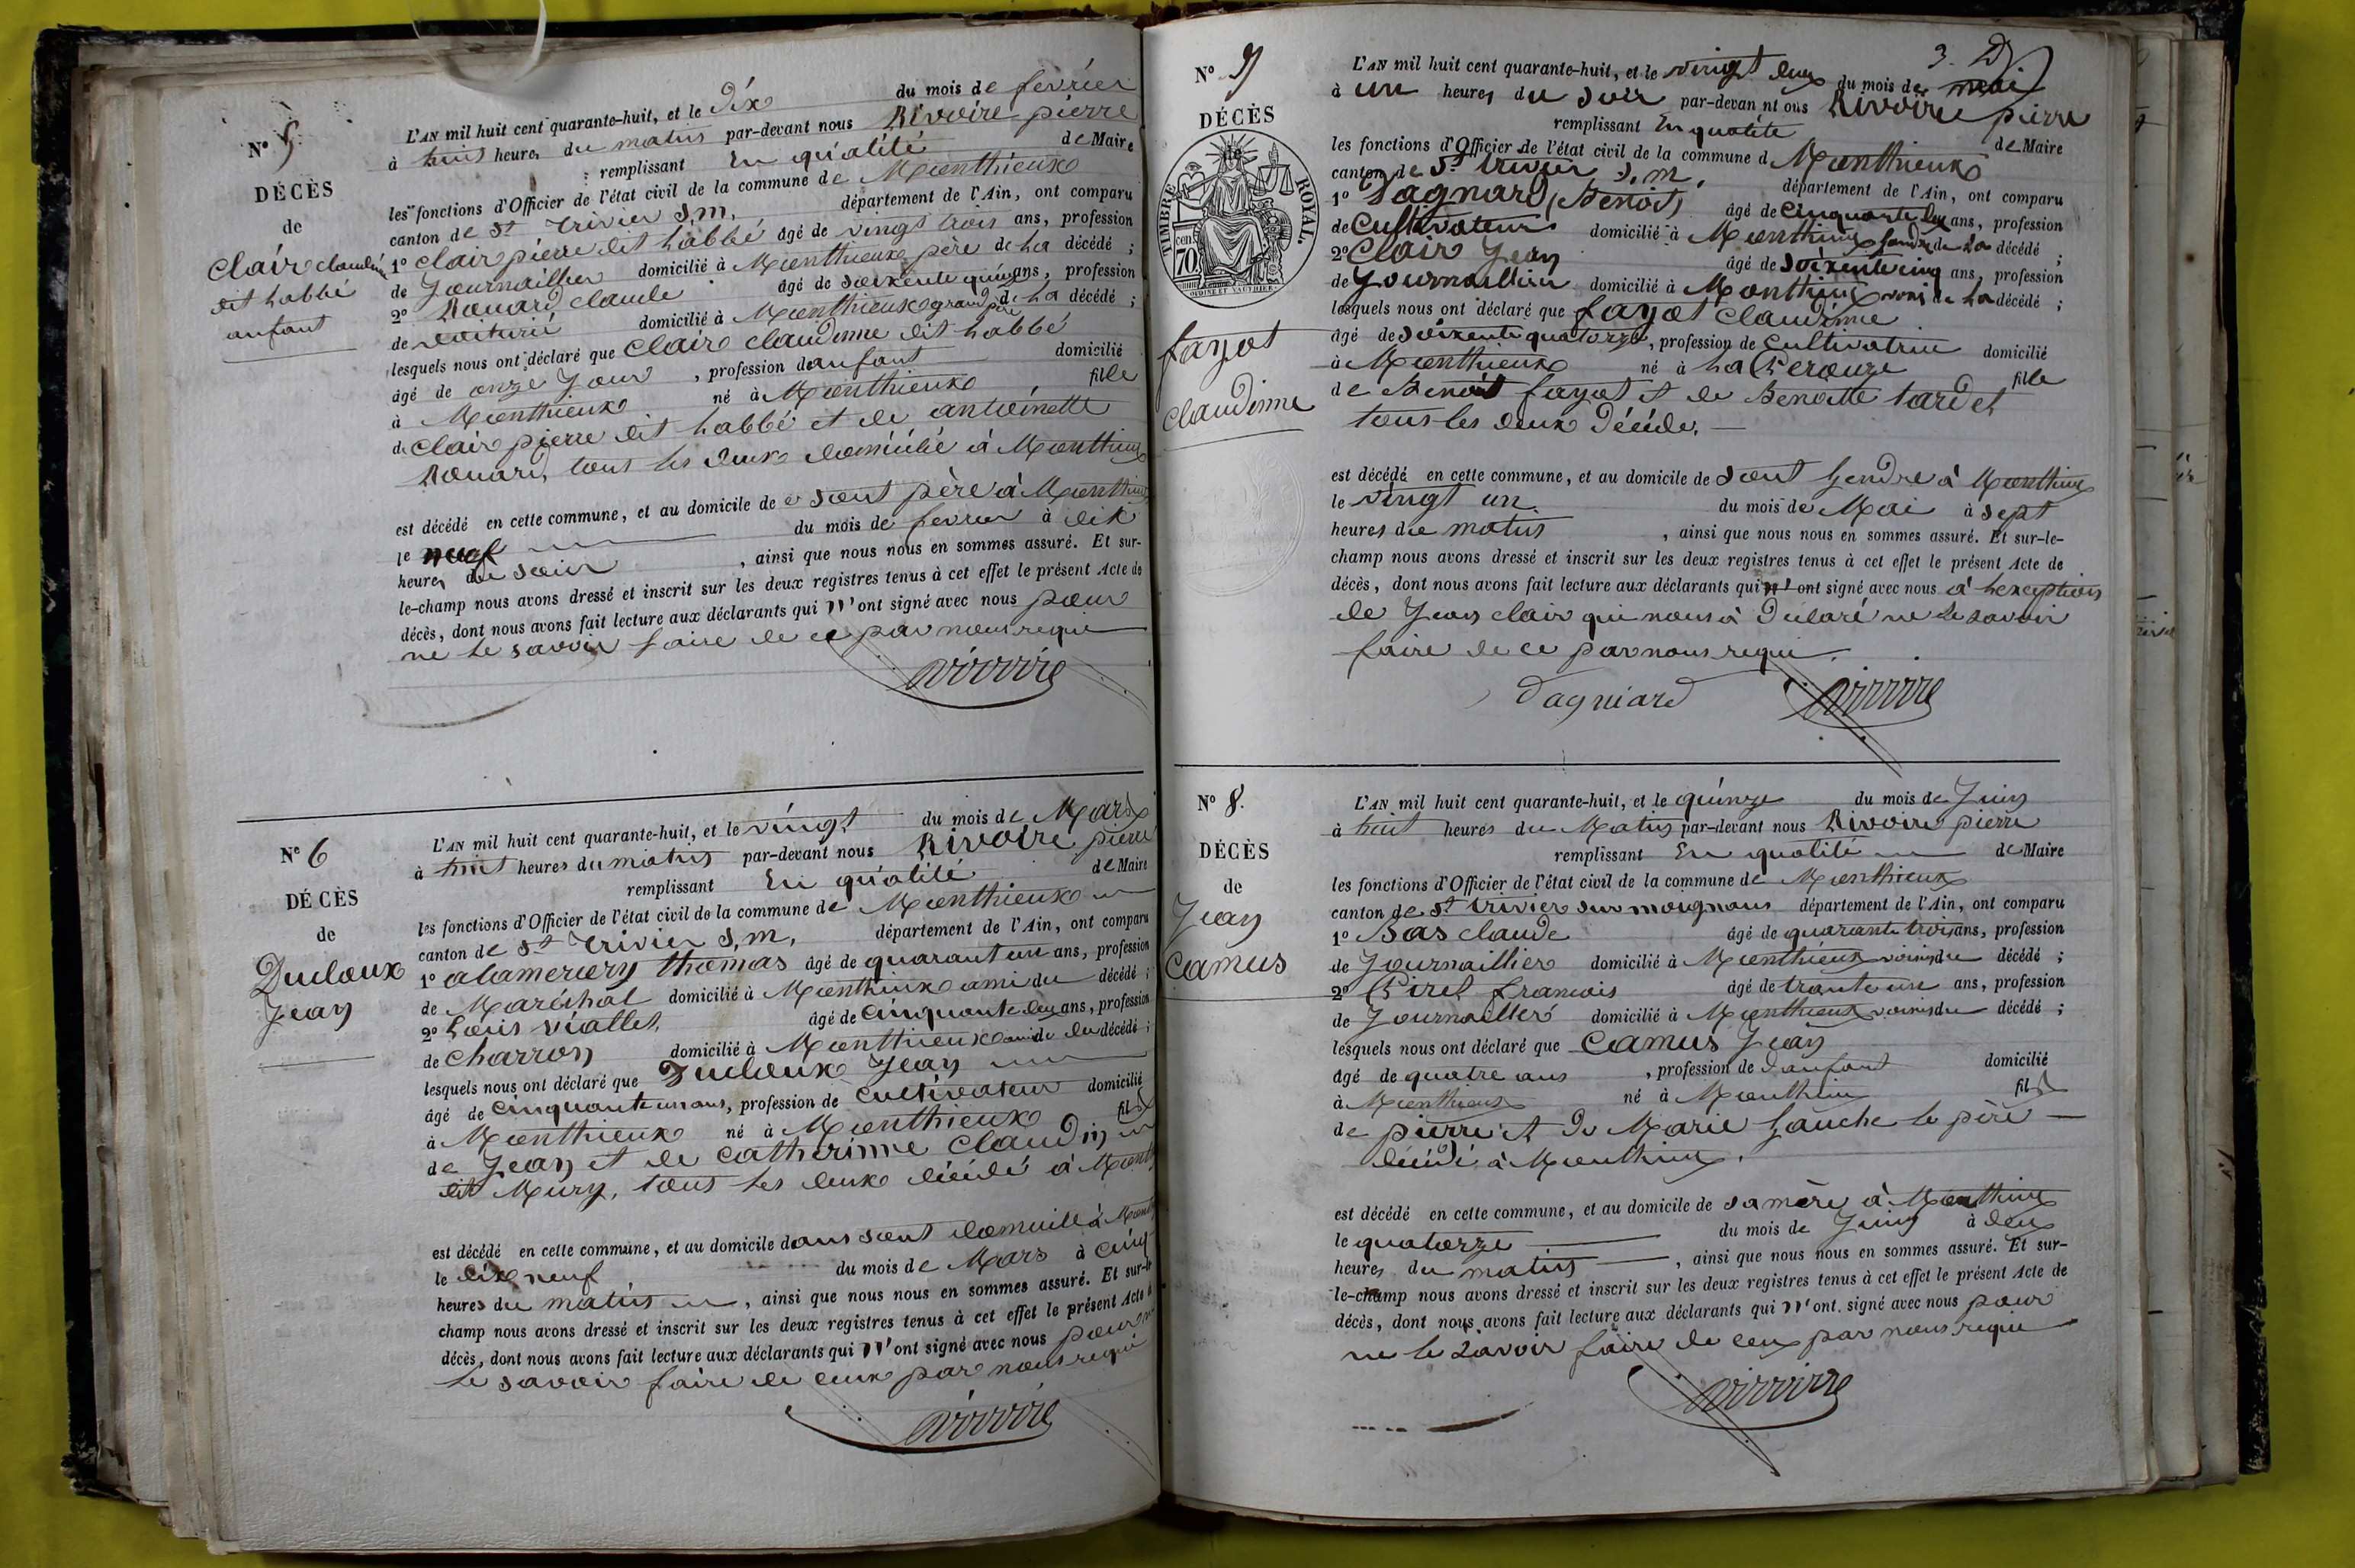 N° 5.
DÉCÈS
de
Clair claudine
dit labbé
anfant
L'AN mil huit cent quarante-huit, et le Dix du mois de fevrier
à huit heures du matin par-devant nous Rivoire pierre
remplissant En qualité de Maire
les fonctions d'Officier de l'état civil de la commune de Monthieux
canton de St trivier S. m. département de l'Ain, ont comparu
1° Clair pierre dit labbé âgé de vingt trois ans, profession
de Journaillier domicilié à Monthieux père de la décédé ;
2° Rouard claude âgé de soixente quinz ans, profession
de voiturié domicilié à Monthieux grand père de la décédé ;
lesquels nous ont déclaré que Clair claudinne dit labbé
âgé de onze Jour , profession d'anfant domicilié
à Monthieux né à Monthieux fille
de Clair pierre dit labbé et de antoinette
Rouard, tous les deux domicilié à Monthieux
est décédé en cette commune, et au domicile de sont père à Monthieux
le neuf du mois de fevrier à dix
heures du soir , ainsi que nous nous en sommes assuré. Et sur-
le-champ nous avons dressé et inscrit sur les deux registres tenus à cet effet le présent Acte de
décès, dont nous avons fait lecture aux déclarants qui n'ont signé avec nous pour
ne le savoir faire de ce par nous requi
Rivoire
N° 6
DÉCÈS
de
Ducloux
Jean
L'AN mil huit cent quarante-huit, et le vingt du mois de Mars
à huit heures du matin par-devant nous Rivoire pierre
remplissant En qualité de Maire
les fonctions d'Officier de l'état civil de la commune de Monthieux
canton de St trivier S. m. département de l'Ain, ont comparu
1° thomas âgé de quarant un ans, profession
de Maréchal domicilié à Monthieux ami du décédé ;
2° Louis viallet âgé de Cinquante deux ans, profession
de Charron domicilié à Monthieux ami du décédé ;
lesquels nous ont déclaré que Ducloux Jean
âgé de Cinquante un ans, profession de Cultivateur domicilié
à Monthieux né à Monthieux fils
de Jean et de Catherinne Claudin
dit Mury, tous les deux décédé à
est décédé en cette commune, et au domicile dans sont domicille à
le dix neuf du mois de Mars à Cinq
heures du matin , ainsi que nous nous en sommes assuré. Et sur-le
champ nous avons dressé et inscrit sur les deux registres tenus à cet effet le présent Acte de
décès, dont nous avons fait lecture aux déclarants qui n'ont signé avec nous pour ne
le savoir faire de ceux par nous requi
Rivoire
3. D
N° 7
DÉCÈS
de
TIMBRE ROYAL.
cen 70
fayot
Claudinne
L'AN mil huit cent quarante-huit, et le vingt deux du mois de mai
à un heures du soir par-devan nt ous Rivoire pierre
remplissant En qualité de Maire
les fonctions d'Officier de l'état civil de la commune d Monthieux
canton de St trivier S. m. département de l'Ain, ont comparu
1° Dagnard (Benoit) âgé de Cinquante deux ans, profession
de Cultivateur domicilié à Monthieux Gendre de la décédé ;
2° Clair Jean âgé de soixente cinq ans, profession
de Journaillier domicilié à Monthieux voisin de la décédé ;
lesquels nous ont déclaré que fayot Claudinne
âgé de soixente quatorze , profession de Cultivatrice domicilié
à Monthieux né à La Perouze fille
de Benoit fayot et de Benoitte tardet
tous les deux Décédé.
est décédé en cette commune, et au domicile de sont Gendre à Monthieux
le vingt un. du mois de Mai à sept
heures du matin , ainsi que nous nous en sommes assuré. Et sur-le-
champ nous avons dressé et inscrit sur les deux registres tenus à cet effet le présent Acte de
décès, dont nous avons fait lecture aux déclarants qui n'ont signé avec nous à l'exception
de Jean clair qui nous à Déclaré ne le savoir
faire de ce par nous requi.
Dagniard Rivoire
N° 8.
DÉCÈS
de
Jean
Camus
L'AN mil huit cent quarante-huit, et le quinze du mois de Juin
à huit heures du Matin par-devant nous Rivoire pierre
remplissant En qualité de Maire
les fonctions d'Officier de l'état civil de la commune de Monthieux
canton de St trivier sur moignans département de l'Ain, ont comparu
1° Bas claude âgé de quarante trois ans, profession
de Journaillier domicilié à Monthieux voisin du décédé ;
2° Piret francois âgé de trante une ans, profession
de Journaillié domicilié à Monthieux voisin du décédé ;
lesquels nous ont déclaré que Camus Jean
âgé de quatre ans , profession de d'anfant domicilié
à Monthieux né à Monthieux fils
de pierre et de Marie Gauche le père
décédé à Monthieux.
est décédé en cette commune, et au domicile de sa mère à Monthieux
le quatorze du mois de Juin à deux
heures du matin , ainsi que nous nous en sommes assuré. Et sur-
le-champ nous avons dressé et inscrit sur les deux registres tenus à cet effet le présent Acte de
décès, dont nous avons fait lecture aux déclarants qui n'ont signé avec nous pour
ne le savoir faire de ceux par nous requi
Rivoire